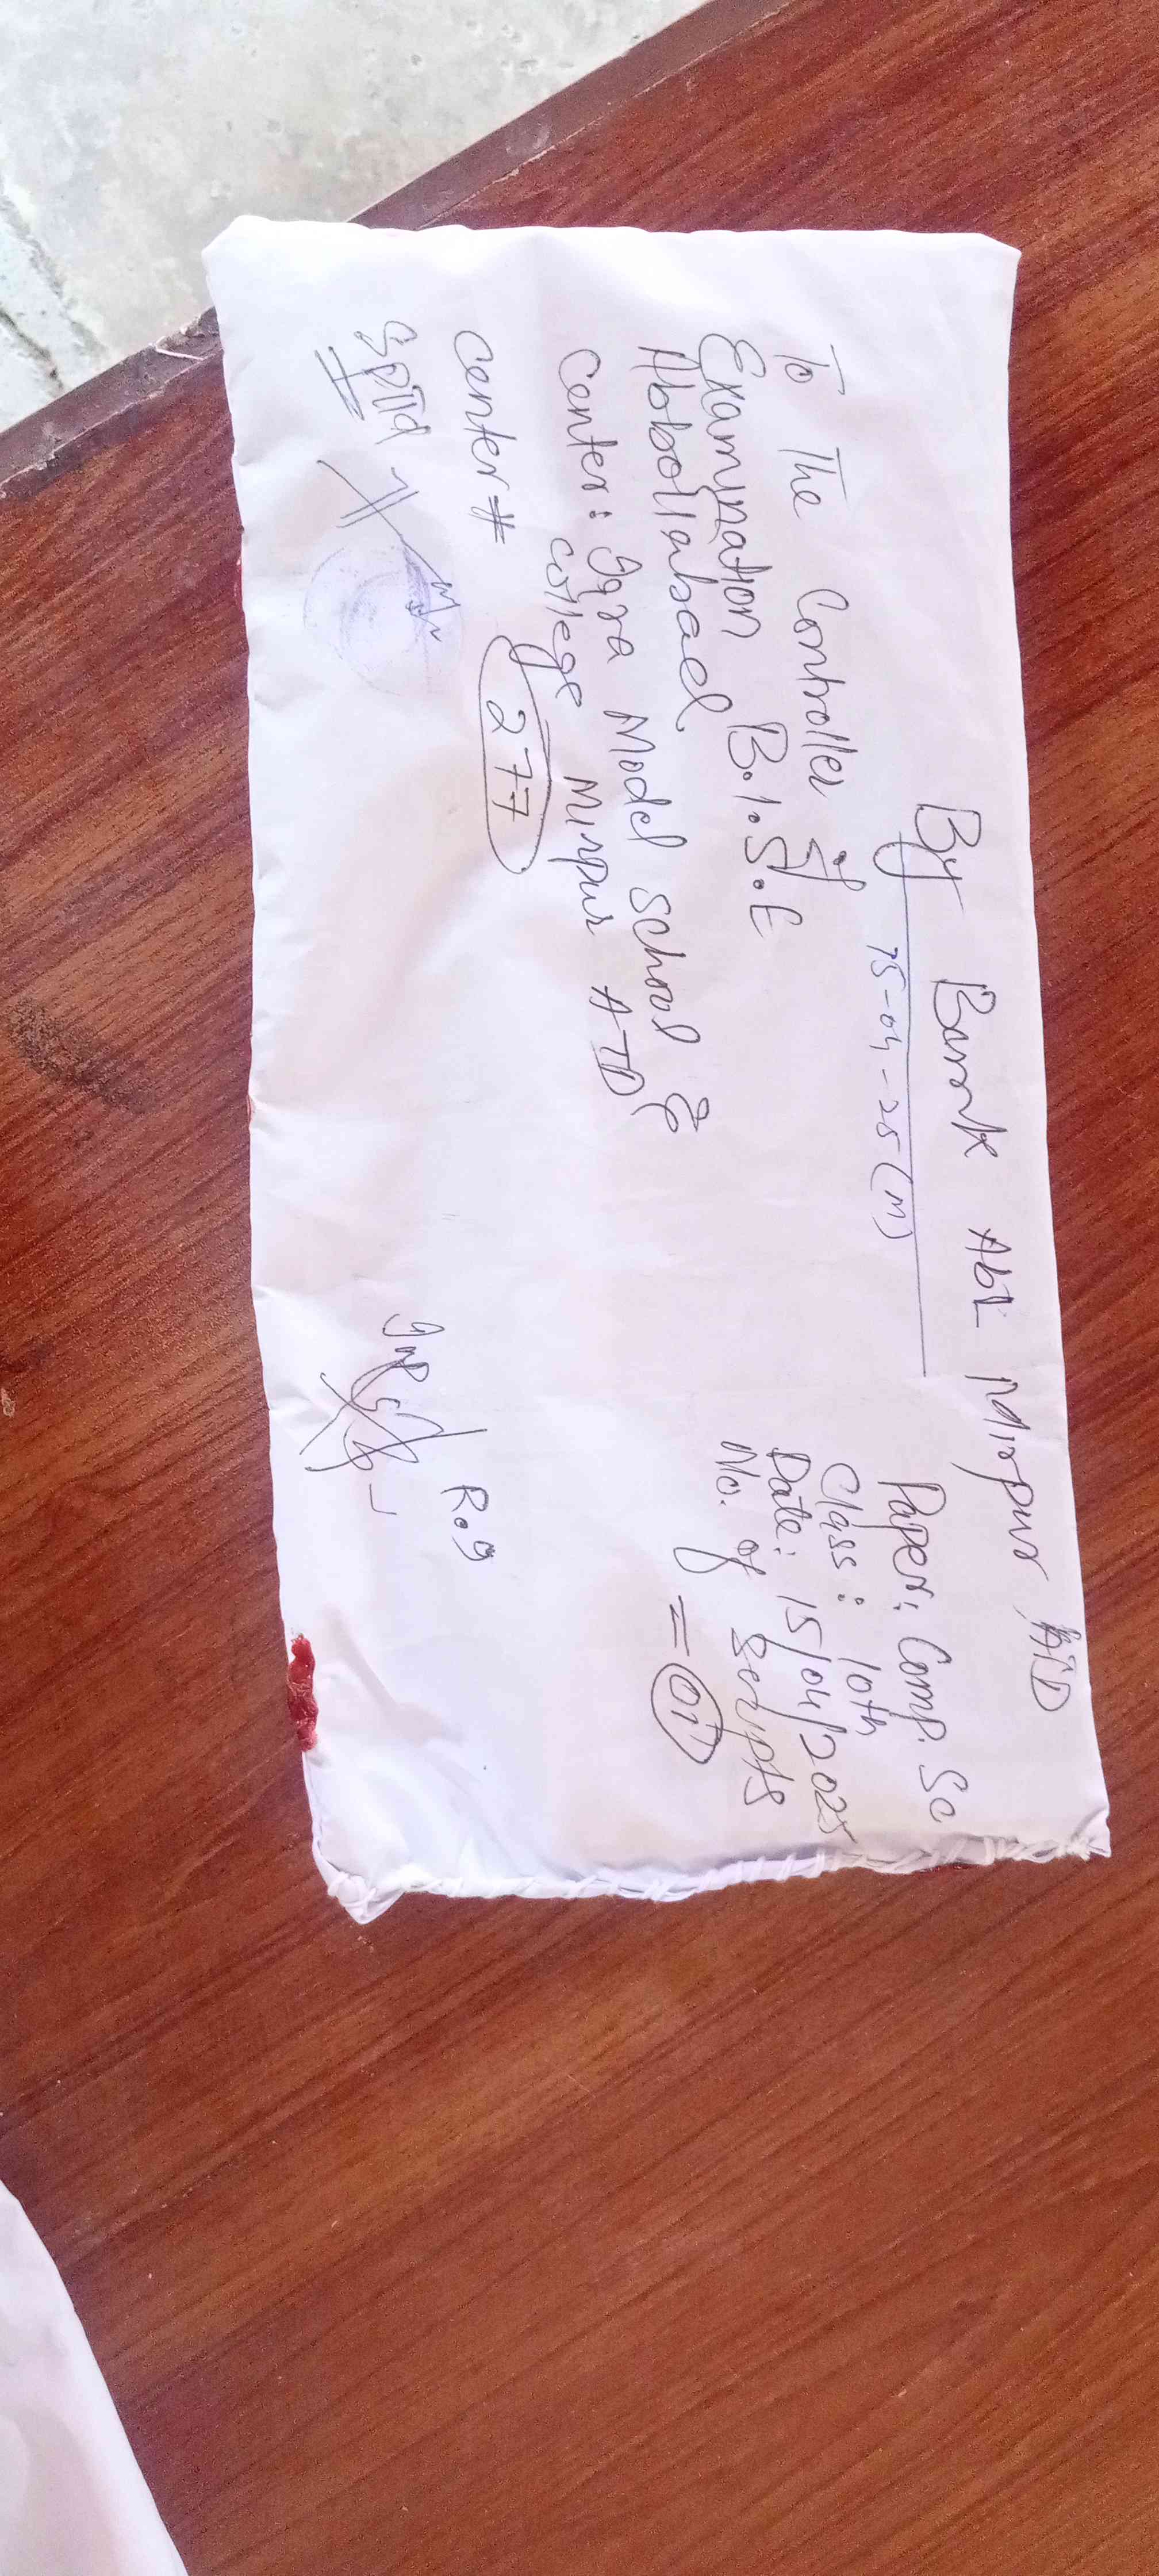 By Bank Abl Mirpur ATD
15-04-25 (M)
To The Controller of
Examination B.I.S.E
Abbottabad
Center: Iqra Model School &
College Mirpur ATD
Center # 277
Sptd
Paper: Comp. Sc
Class: 10th
Date: 15/04/2025
No. of Scripts
= 01
R.I